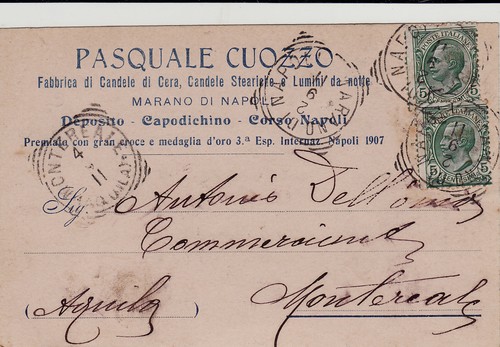 PASQUALE CUOZZO
Fabbrica di Candele di Cera, Candele Steariche e Lumini da notte
MARANO DI NAPOLI
Deposito - Capodichino - Corso Napoli
Premiato con gran croce e medaglia d'oro 3.ª Esp. Internaz. Napoli 1907
POSTE ITALIANE
5
5
MONTEREALE
4
11
MARANO DI NAPOLI
Sig. Antonio
Commerciante
(Aquila)
Montereale